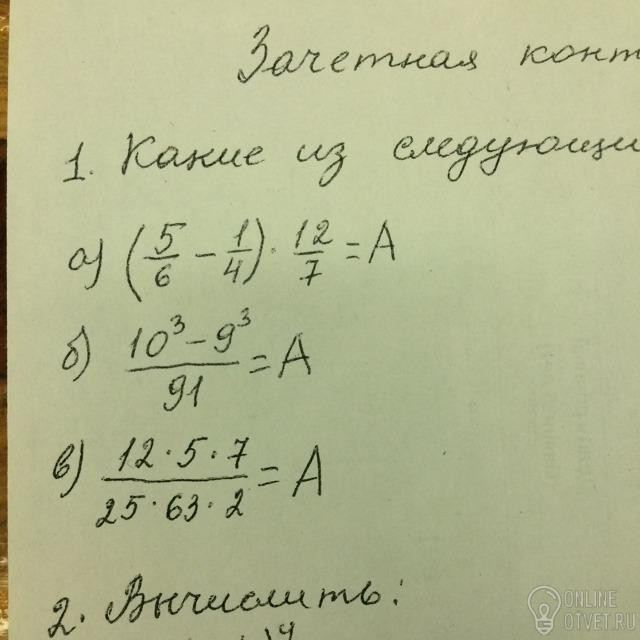 Зачетная конт
1. Какие из следующи
а) (5/6 − 1/4) · 12/7 = A
б) (10³ − 9³)/91 = A
в) (12 · 5 · 7)/(25 · 63 · 2) = A
2. Вычислить:
ONLINE
OTVET.RU